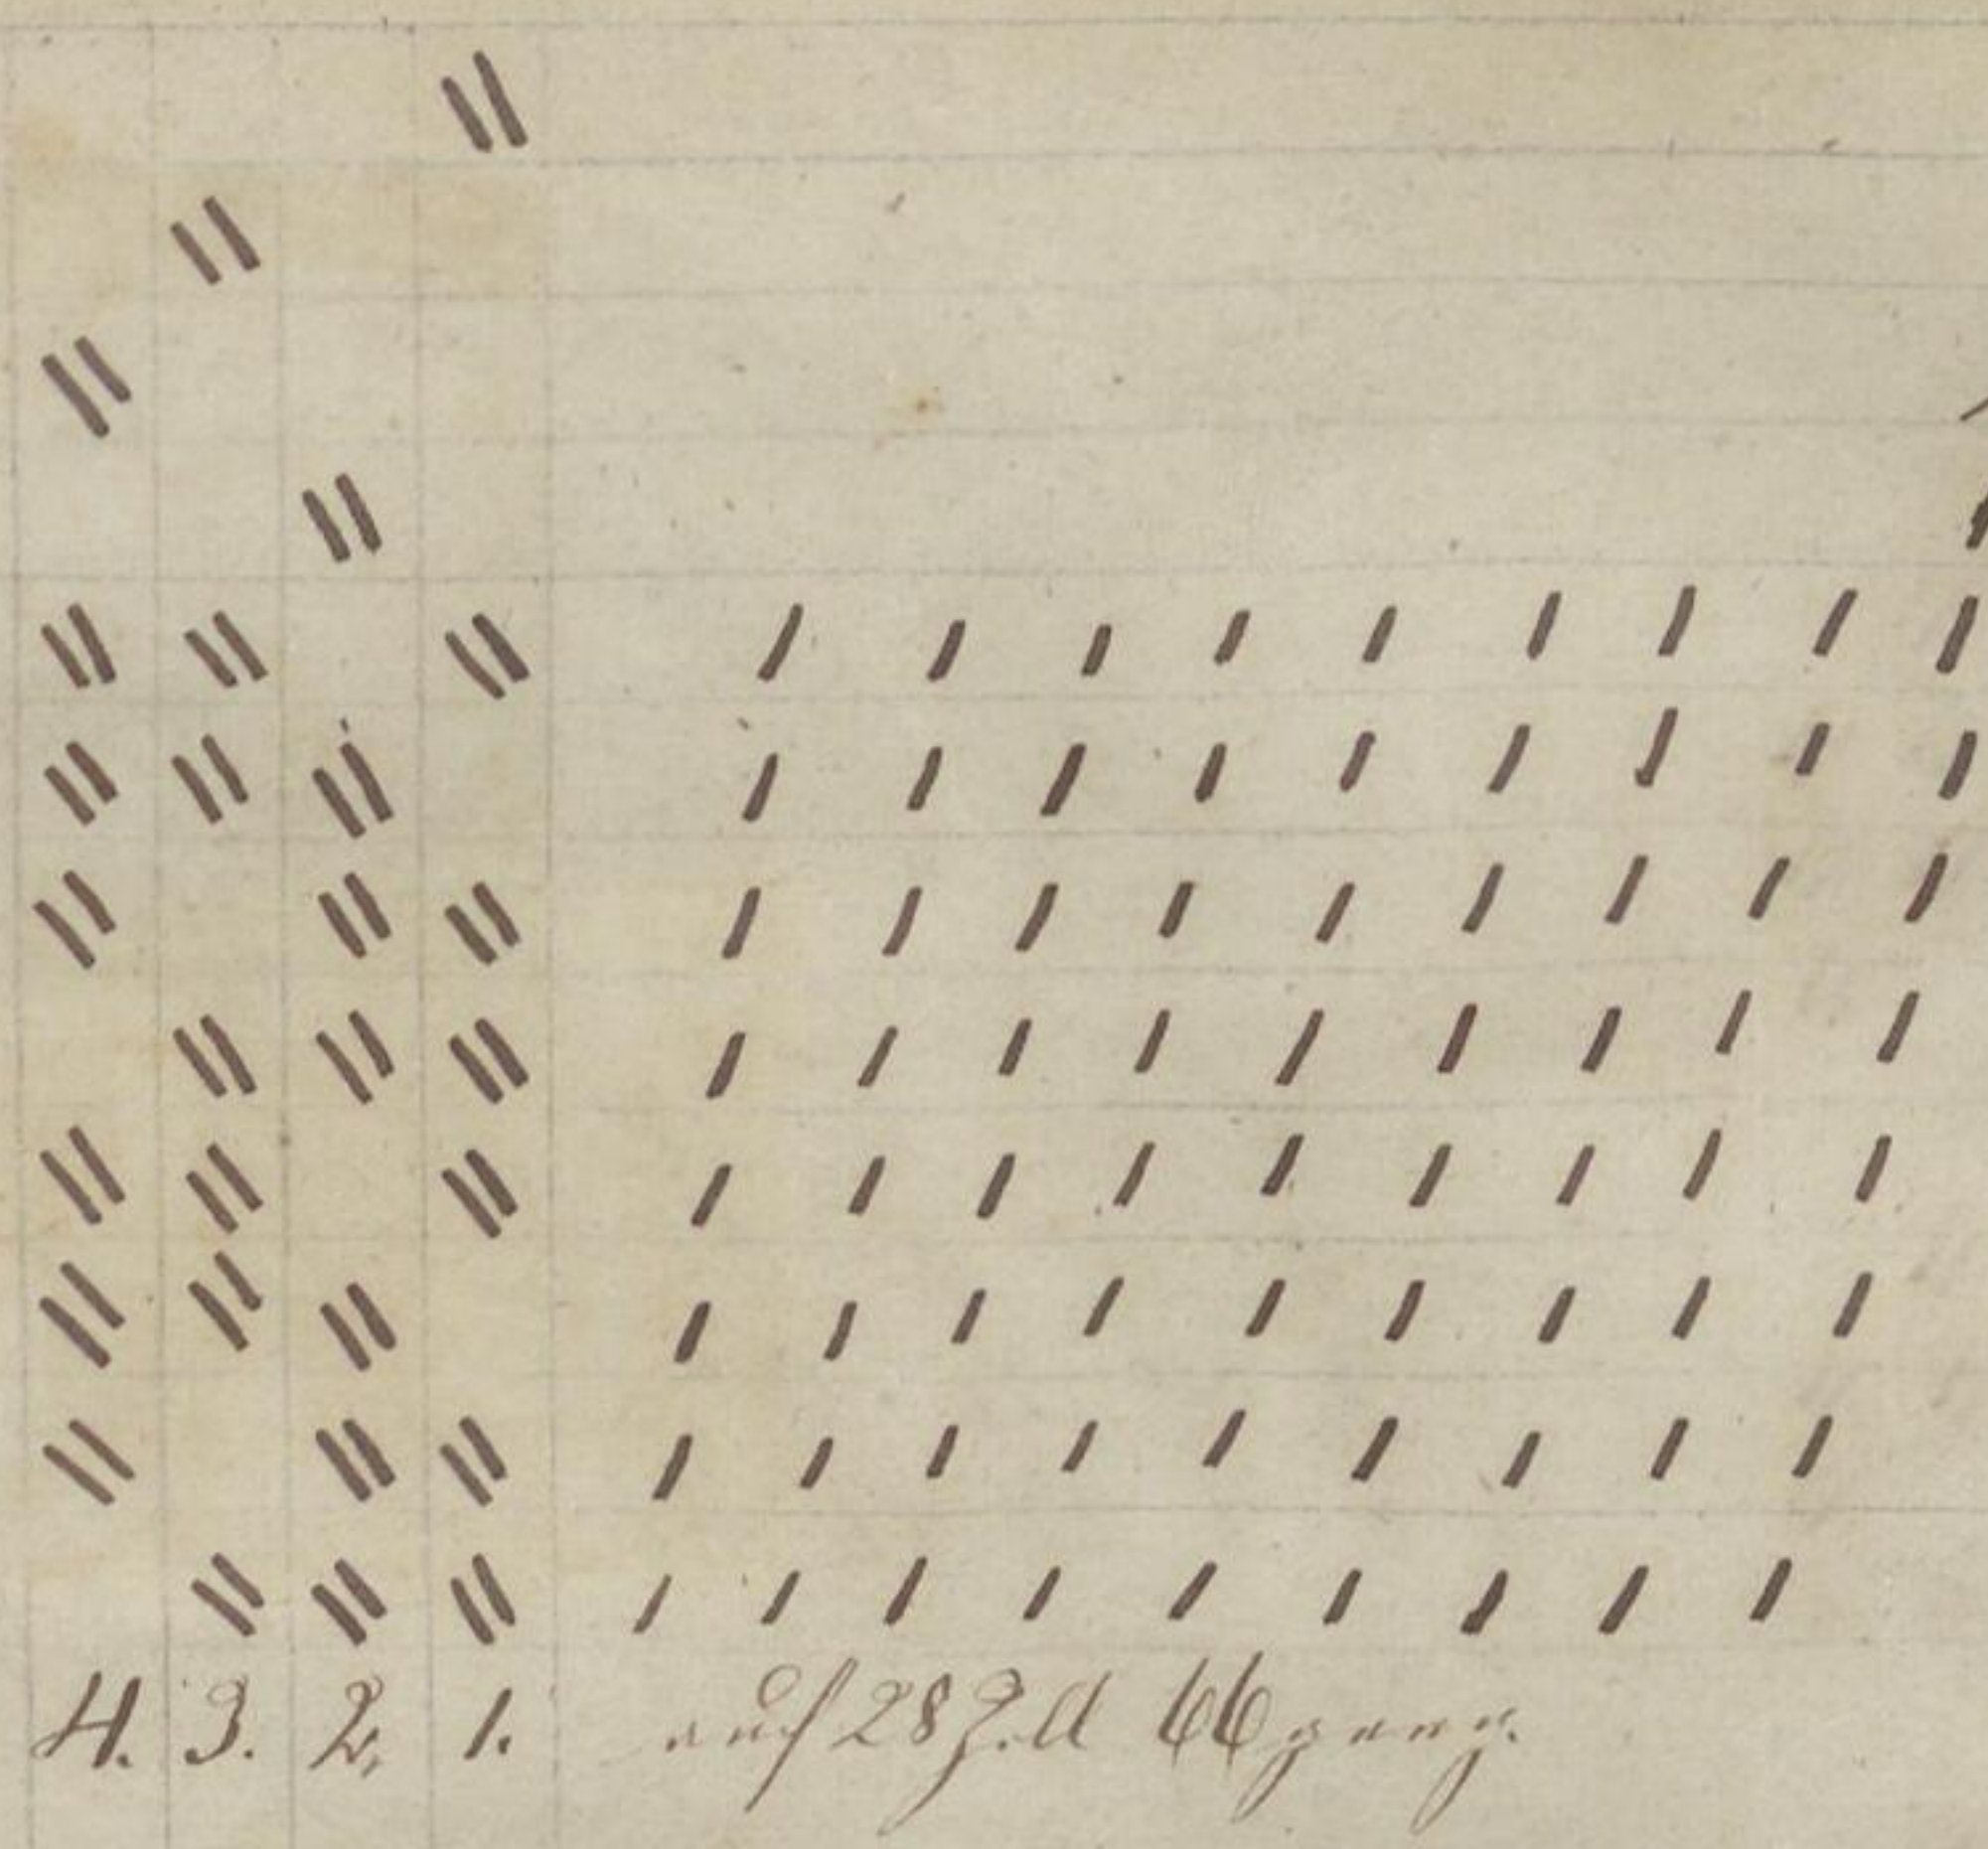 4. 3. 2. 1. auf 28 Z.ll 66 gang.